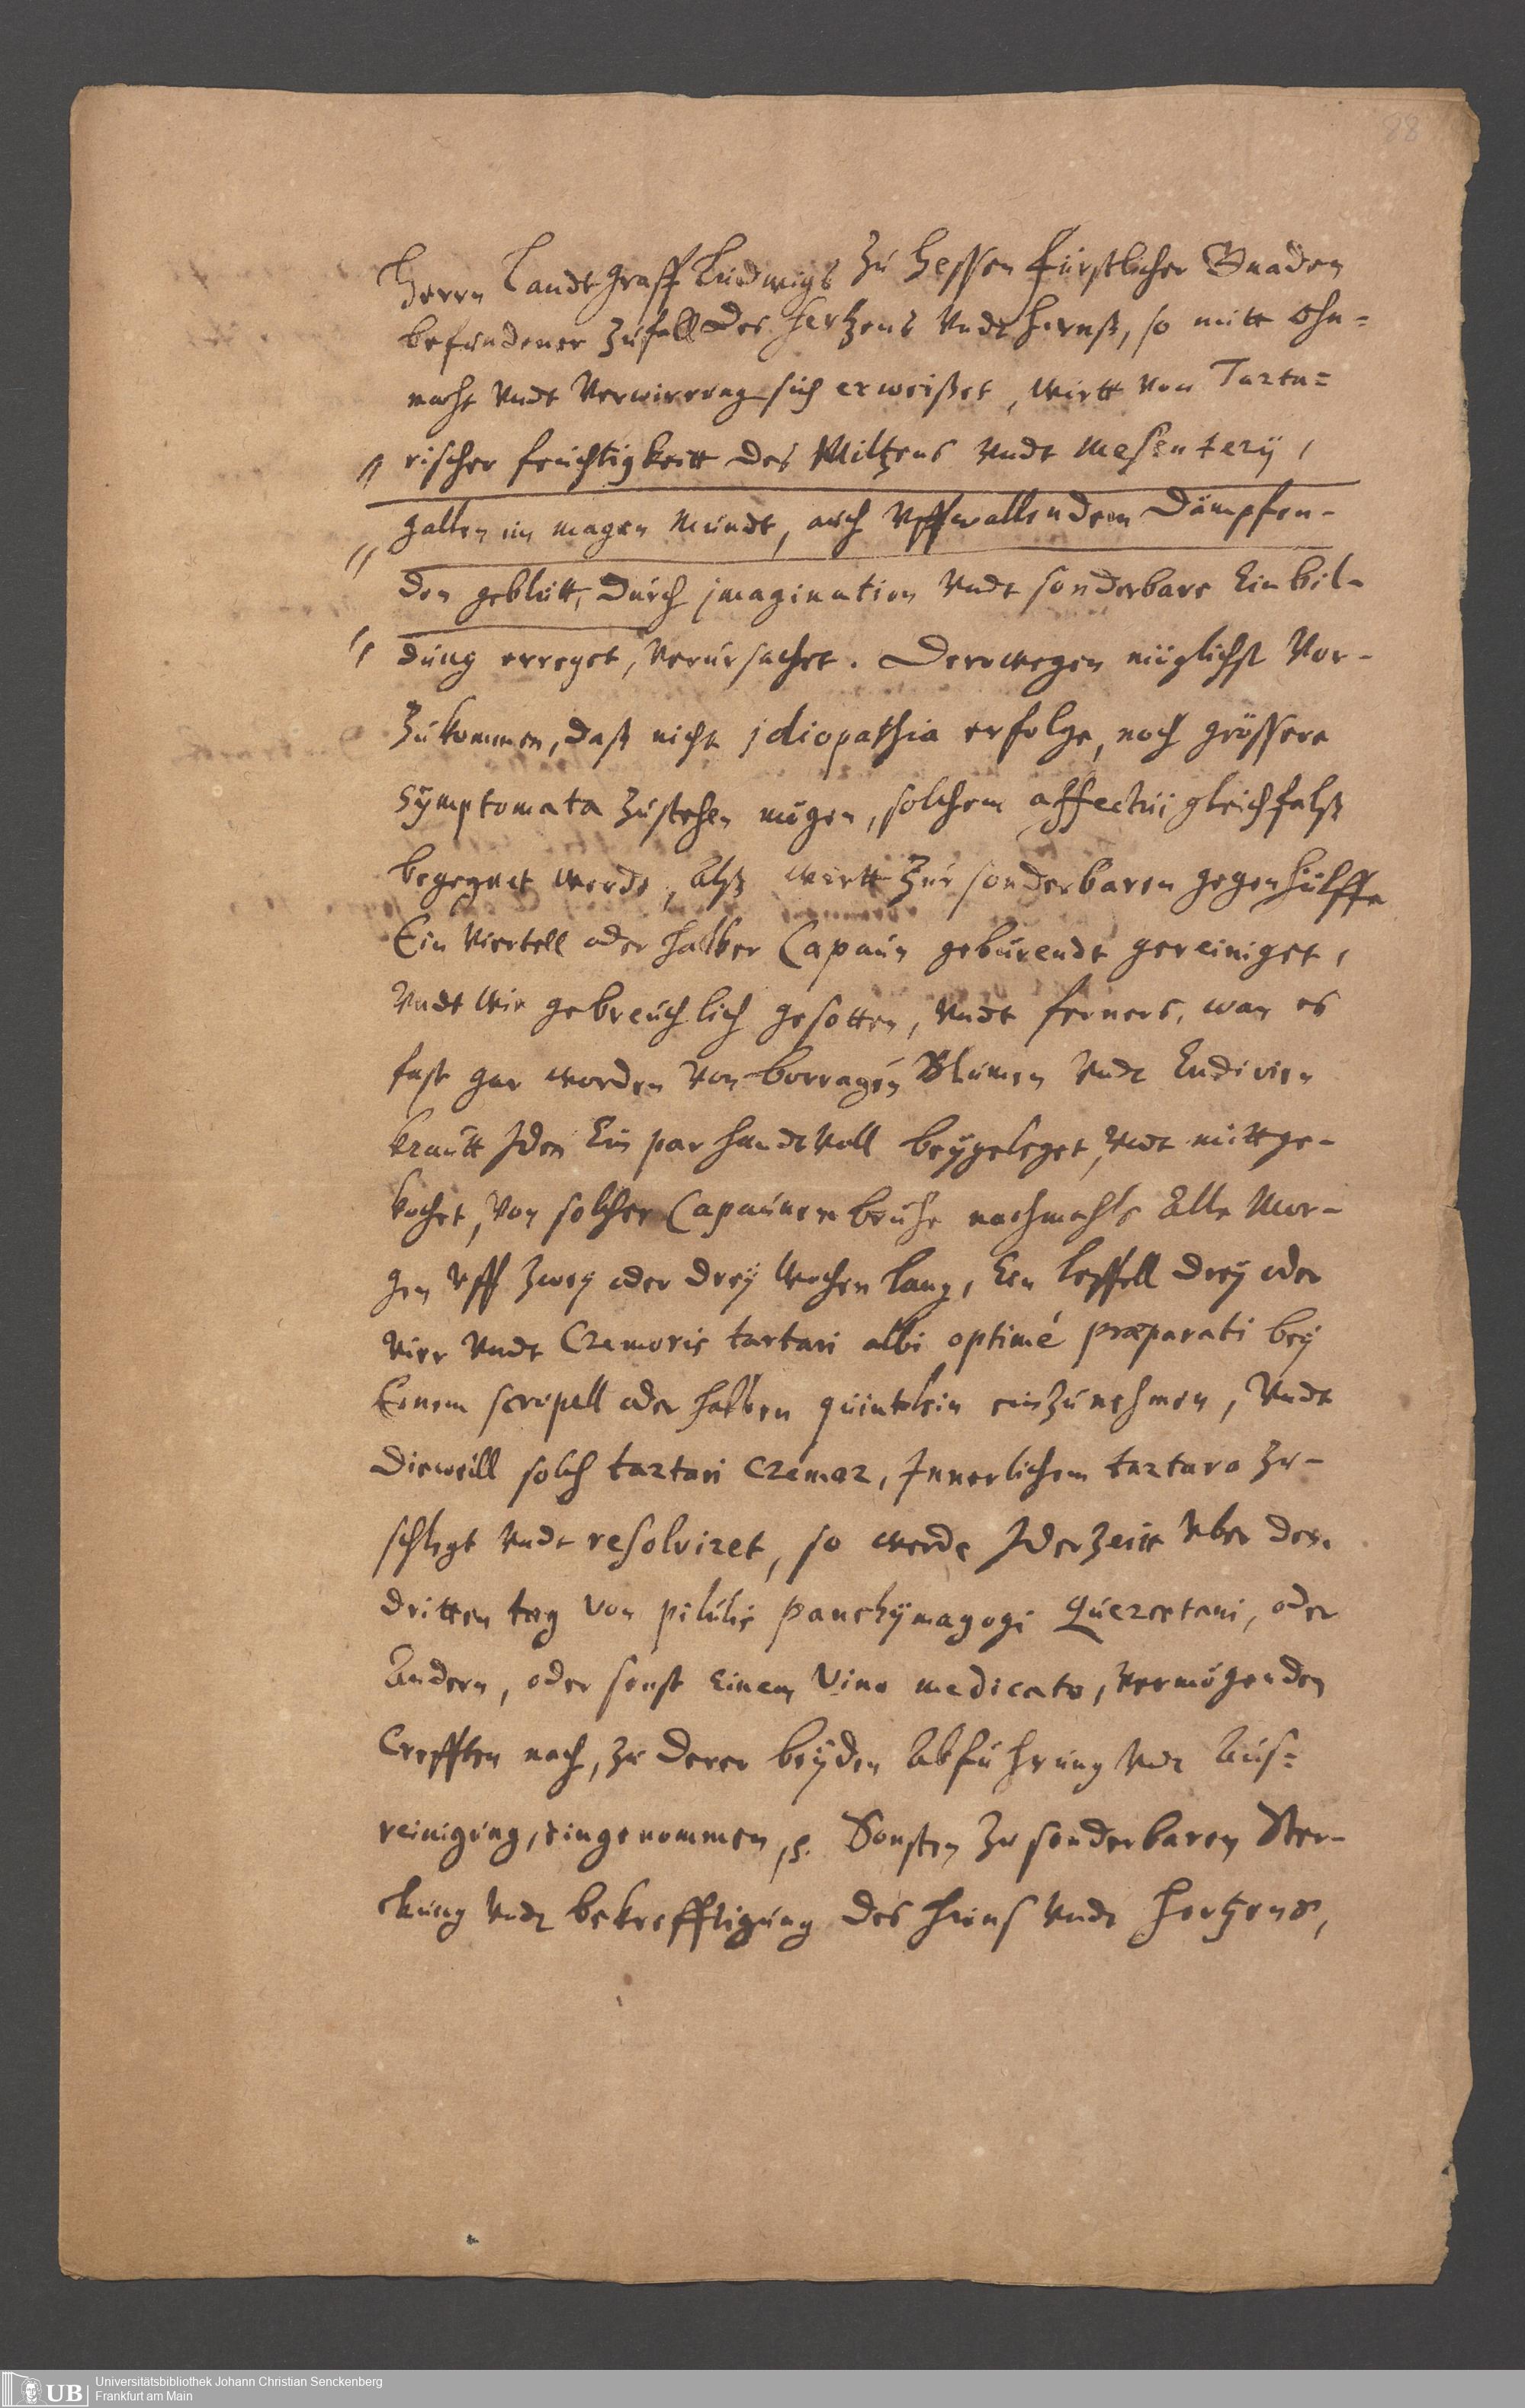 88
Herrn Landtgraff Ludwigs zu Hessen Fürstlicher Gnaden
befundener zufall des hertzens vndt hirnß, so mitt ohn=
macht vndt verwirrung sich erweißet, wirtt von Tarta=
rischer feuchtigkeitt des Miltzens vndt Mesenterÿ,
gallen im magen mundt, auch vffwallendem dämpfen-
den geblütt, durch jmagination vndt sonderbare Einbil-
dung erreget, verursachet. Derowegen müglichst vor-
zukommen, daß nicht jdiopathia erfolge, noch grössere
symptomata zustehen mügen, solchem affectui gleichfalß
begegnet werde, alß wirtt zur sonderbaren gegenhülffe
Ein viertell oder halber Capaun gebürendt gereiniget,
vndt wie gebreuchlich gesotten, vndt ferners, wan es
fast gar worden von borragen Blumen vndt Endivien
krautt Jden Ein par handtvoll beÿgeleget, vndt mittge-
kochet, von solcher Capaunenbrühe nachmahls alle Mor-
gen vff zweÿ oder dreÿ wochen lang, Ein leffell dreÿ oder
vier vndt Cremoris tartari albi optimé præparati beÿ
Einem scrupell oder halben quintlein einzunehmen, vndt
dieweill solch tartari cremor, Innerlichem tartaro zu-
schlegt vndt resolviret, so werde Jderzeitt vber den
dritten tag von pilulis panchÿmagogi Quercetani, oder
andern, oder sonst einem Vino medicato, vermögenden
Crefften nach, zu derer beÿden abführung vndt aus=
reinigung, eingenommen, Sonsten zu sonderbaren Ster-
ckung vndt bekrefftigung des hirns vndt hertzens,
UB Universitätsbibliothek Johann Christian Senckenberg
Frankfurt am Main